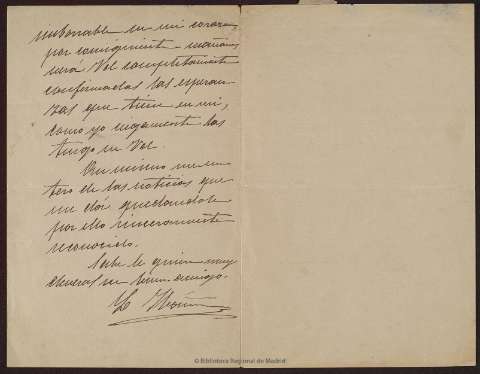 imborrable en mi corazon,
por consiguiente mañana
verá Vd completamente
confirmadas las esperan
zas que tiene en mi,
como yo ciegamente las
tengo en Vd.
Asi mismo me en
tero de las noticias que
me dá, quedandole
por ello sinceramente
reconocido.
Sabe le quiere muy
deveras su buen amigo.
© Biblioteca Nacional de Madrid